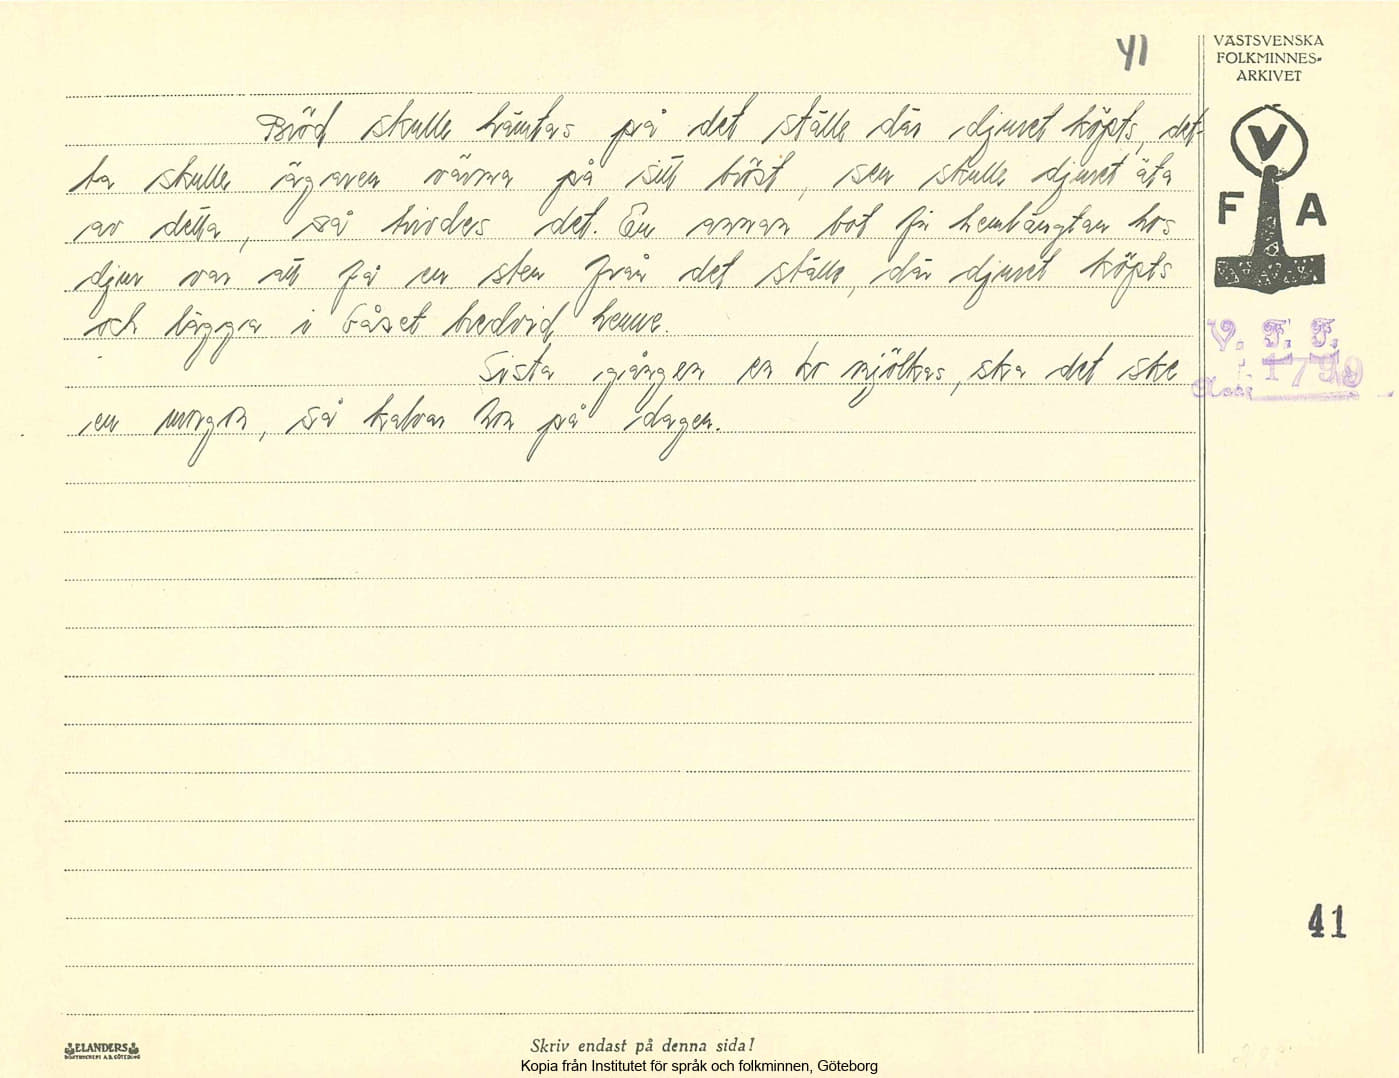 41
VÄSTSVENSKA
FOLKMINNES-
ARKIVET
Bröd skulle hämtas på det ställe där djuret köpts, det-
ta skulle ägaren värma på sitt bröst, sen skulle djuret äta
av detta, så trivdes det. En annan bot för hemlängtan hos
djur var att få en sten från det ställe, där djuret köpts
och lägga i båset bredvid henne.
Sista gången en ko mjölkas, ska det ske
en morgon, så kalvar hon på dagen.
V
F A
V. F. F.
1799
41
ELANDERS
BOKTRYCKERI A.B. GÖTEBORG
Skriv endast på denna sida!
Kopia från Institutet för språk och folkminnen, Göteborg